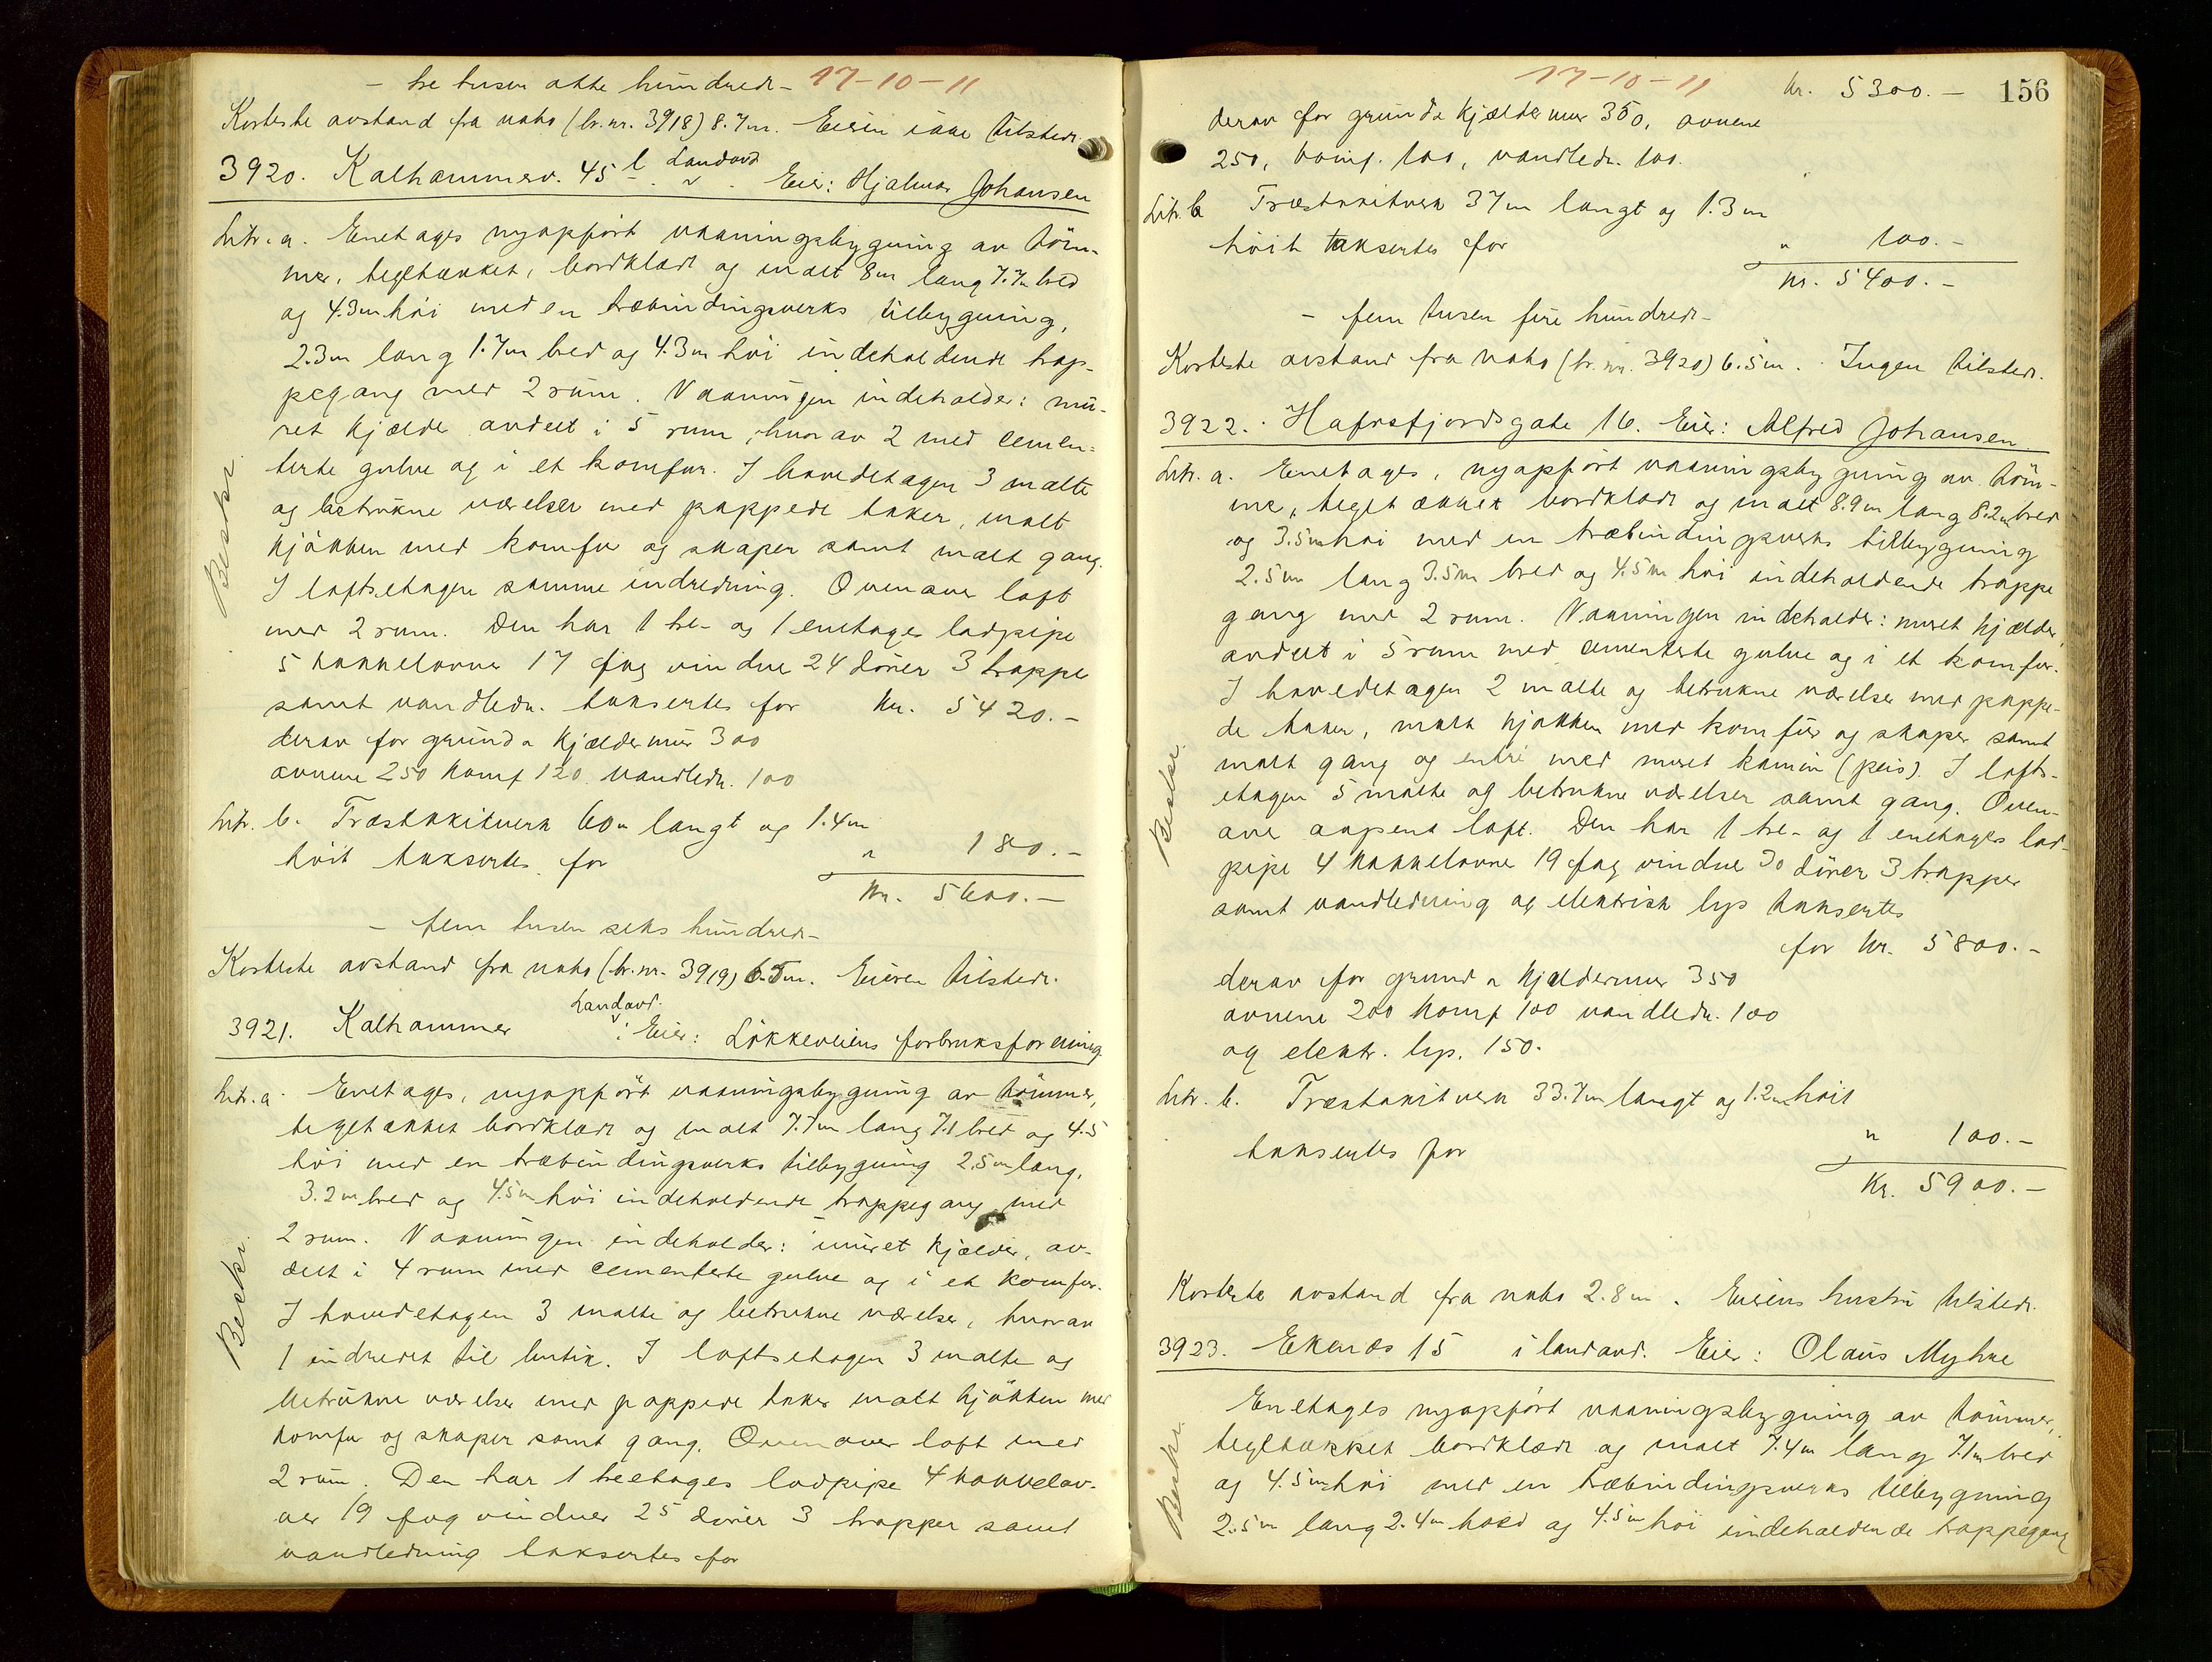 - tre tusen otte hundrede - 17-10-11
Korteste avstand fra nabo (br.nr. 3918) 8.7m. Eieren ikke tilstede.
3920. Kalhammerv. 45 b Landavd. Eier: Hjalmar Johansen
Litr. a. Enetages nyopført vaaningsbygning av tøm-
mer, tegltækket, bordklædt og malt 8m lang 7.7m bred
og 4.3m høi med en træbindingsverks tilbygning,
2.3m lang 1.7m bred og 4.3m høi indeholdende trap-
pegang med 2 rum. Vaaningen indeholder: mu-
ret kjælder avdelt i 5 rum, hvorav 2 med cemen-
terte gulve og i et komfur. I hovedetagen 3 malte
og betrukne værelser med pappede taker, malt
kjøkken med komfur og skaper samt malt gang.
I loftsetagen samme indredning. Ovenover loft
med 2 rum. Den har 1 tre- og 1 enetages lodpipe
5 kakkelovner 17 fag vinduer 24 dører 3 trapper
samt vandledn. taksertes for Kr. 5420.-
derav for grund & kjældermur 300
ovnene 250 komf 120 vandledn. 100
Litr. b. Træstakitverk 60m langt og 1.4m
høit taksertes for " 180.-
Kr. 5600.-
- fem tusen seks hundrede -
Korteste avstand fra nabo (br.nr. 3919) 6.5m. Eieren tilstede.
3921. Kalhammer Landavd. Eier: Løkkeveiens forbruksforening
Litr. a. Enetages, nyopført vaaningsbygning av tømmer,
tegltækket bordklædt og malt 7.7m lang 7.1 bred og 4.5
høi med en træbindingsverks tilbygning 2.5m lang,
3.2m bred og 4.5m høi indeholdende trappegang med
2 rum. Vaaningen indeholder: muret kjælder, av-
delt i 4 rum med cementerte gulve og i et komfur.
I hovedetagen 3 malte og betrukne værelser, hvorav
1 indredet til butik. I loftsetagen 3 malte og
betrukne værelser med pappede taker malt kjøkken med
komfur og skaper samt gang. Ovenover loft med
2 rum. Den har 1 treetages lodpipe 4 kakkelov-
ner 19 fag vinduer 25 dører 3 trapper samt
vandledning taksertes for
Beskr.
Beskr.
17-10-11 kr. 5300.- 156
derav for grund & kjældermur 350, ovnene
250, komf. 100, vandledn. 100.
Litr. b Træstakitverk 37m langt og 1.3m
høit taksertes for " 100.-
Kr. 5400.-
- fem tusen fire hundrede -
Korteste avstand fra nabo (br.nr. 3920) 6.5m. Ingen tilstede.
3922. Hafrsfjordsgate 16. Eier: Alfred Johansen
Litr. a. Enetages, nyopført vaaningsbygning av tøm-
mer, tegltækket bordklædt og malt 8.9m lang 8.2m bred
og 3.5m høi med en træbindingsverks tilbygning
2.5m lang 3.5m bred og 4.5m høi indeholdende trappe
gang med 2 rum. Vaaningen indeholder: muret kjælder
avdelt i 5 rum med cementerte gulve og i et komfur.
I hovedetagen 2 malte og betrukne værelser med pappe-
de taker, malt kjøkken med komfur og skaper samt
malt gang og entré med muret kamin (peis). I lofts-
etagen 5 malte og betrukne værelser samt gang. Oven-
over aapent loft. Den har 1 tre- og 1 enetages lod-
pipe 4 kakkelovne 19 fag vinduer 30 dører 3 trapper
samt vandledning og elektrisk lys taksertes
for kr. 5800.-
derav for grund & kjældermur 350
ovnene 200 komf 100 vandledn. 100
og elektr. lys. 150.
Litr. b. Træstakitverk 33.7m langt og 1.2m høit
taksertes for " 100.-
Kr. 5900.-
Korteste avstand fra nabo 2.8m. Eierens hustru tilstede.
3923. Ekenæs 15 i landavd. Eier: Olaus Myhre
Enetages nyopført vaaningsbygning av tømmer,
tegltækket bordklædt og malt 7.4m lang 7.1m bred
og 4.5m høi med en træbindingsverks tilbygning
2.5m lang 2.4m bred og 4.5m høi indeholdende trappegang
Beskr.
Beskr.